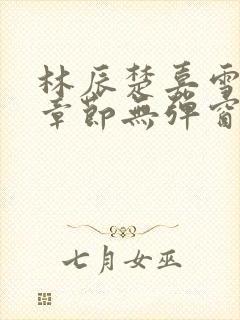 林辰楚嘉雪
章節無彈窗
七月女巫